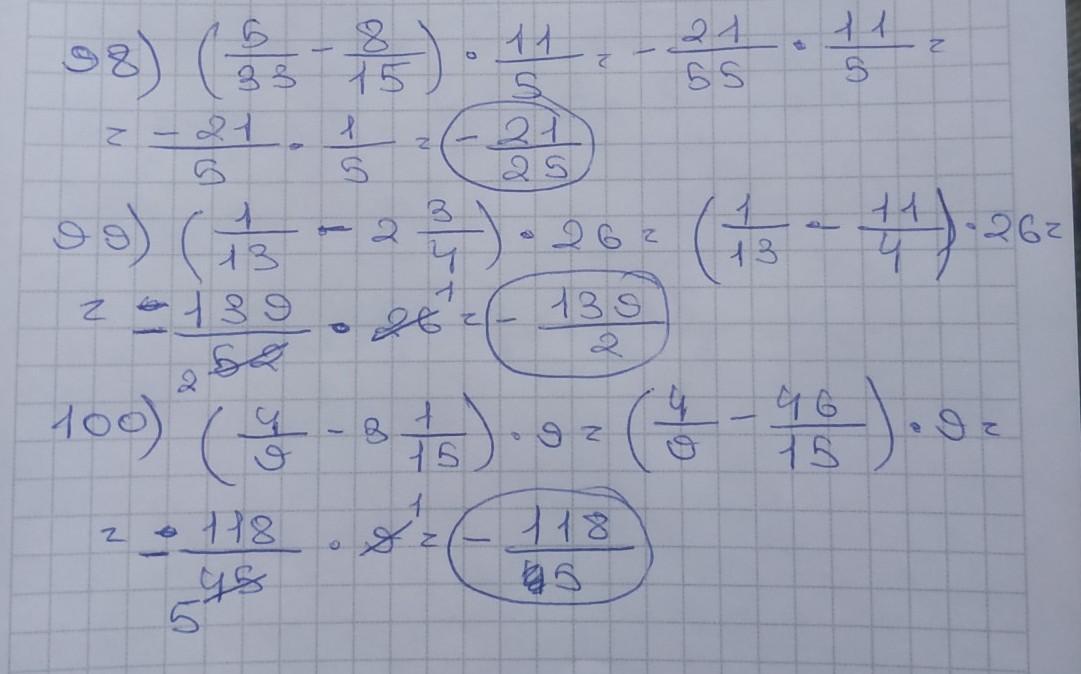 98) (5/33 - 8/15) · 11/5 = - 21/55 · 11/5 =
= -21/5 · 1/5 = - 21/25
99) (1/13 - 2 3/4) · 26 = (1/13 - 11/4) · 26 =
= - 139/52 2 · 26 1 = - 139/2
100) (4/9 - 3 1/15) · 9 = (4/9 - 46/15) · 9 =
= - 118/45 5 · 9 1 = - 118/5